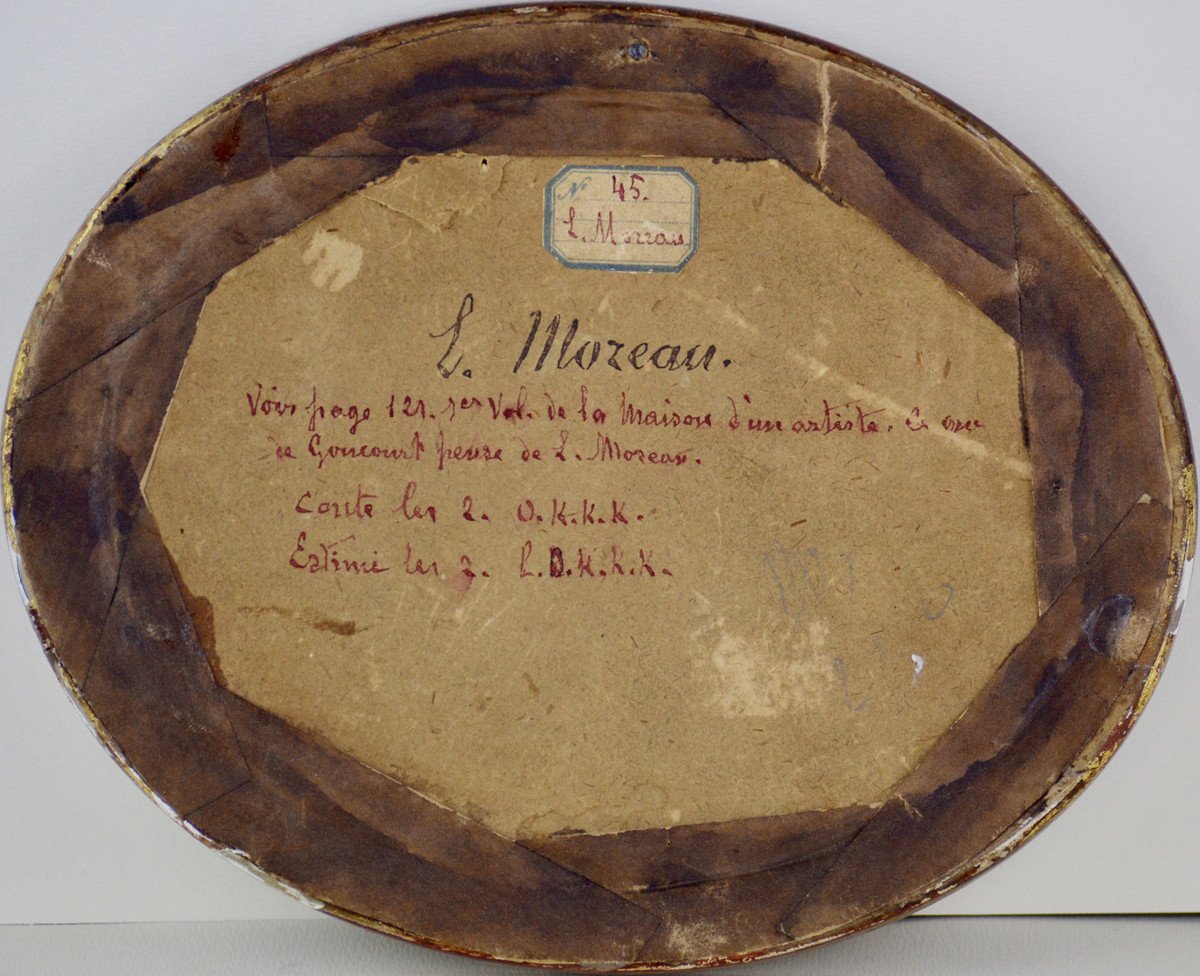 N° 45.
L. Moreau
L. Moreau.
Voir page 121. 1er Vol. de la Maison d'un artiste. Ce que
de Goncourt pense de L. Moreau.
Coute les 2. O.K.K.K.
Estimé les 2. L.O.K.K.K.